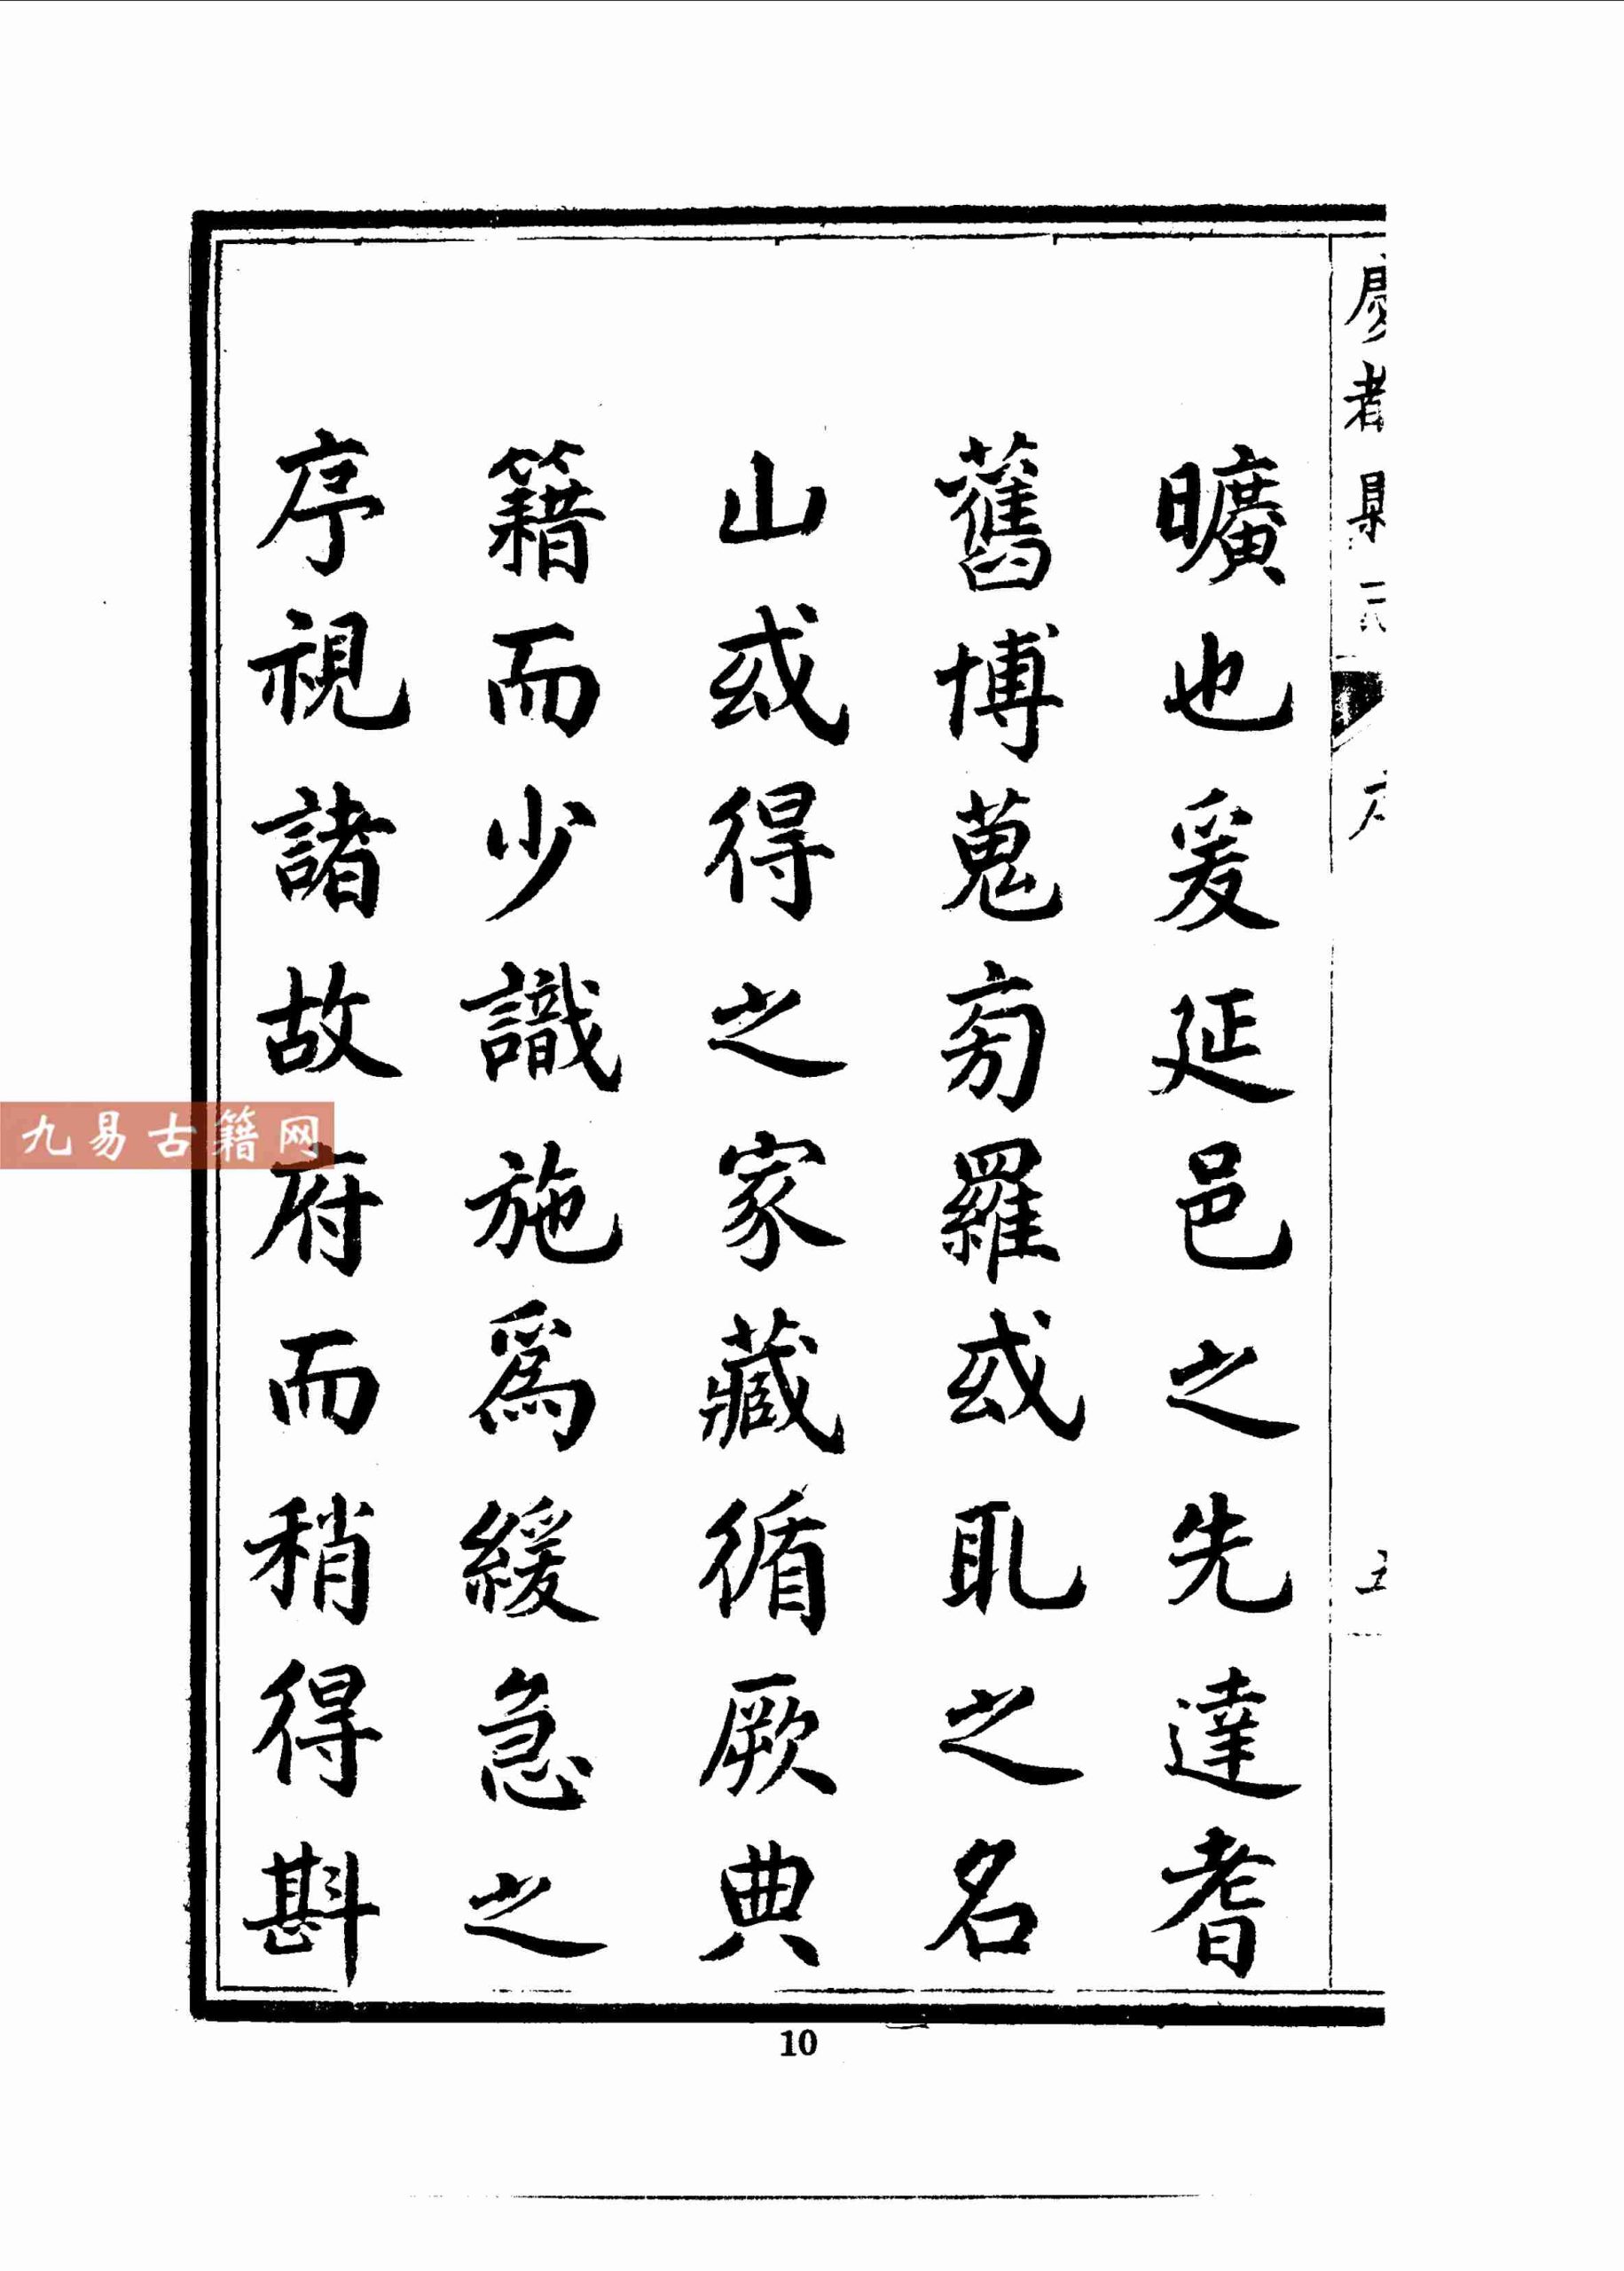 曠也爰延邑之先達耆
舊博蒐匄羅或耴之名
山或得之家藏循厥典
籍而少識施爲緩急之
序視諸故府而稍得斟
九易古籍网
10